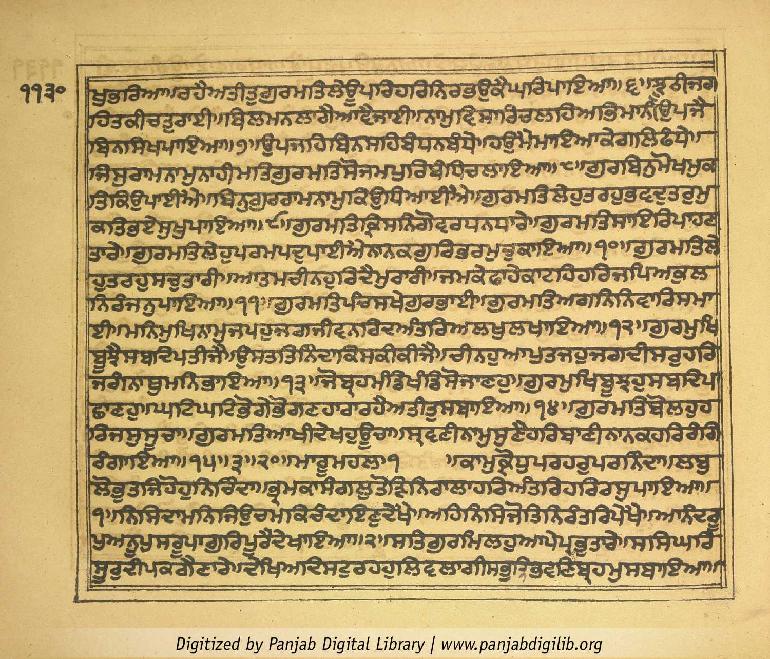 ੧੧੩੦
ਖੁਭਰਿਆ॥ਰਹੈਅਤੀਤੁਗੁਰਮਤਿਲੇਊਪਰਿਹਰਿਨਿਰਭਉਕੈਘਰਿਪਾਇਆ॥੬॥ਝੂਠੀਜਗ
ਹਿਤਕੀਚਤੁਰਾਈ॥ਬਿਲਮਨਲਾਗੈਆਵੈਜਾਈ॥ਨਾਮੁਵਿਸਾਰਿਚਲਹਿਅਭਿਮਾਨੀਉਪਜੈ
ਬਿਨਸਿਖਪਾਇਆ॥੭॥ਉਪਜਹਿਬਿਨਸਹਿਬੰਧਨਬੰਧੇ॥ਹਉਮੈਮਾਇਆਕੇਗਲਿਫੰਧੇ॥
ਜਿਸੁਰਾਮਨਾਮੁਨਾਹੀਮਤਿਗੁਰਮਤਿਸੋਜਮਪੁਰਿਬੰਧਿਚਲਾਇਆ॥੮॥ਗੁਰਬਿਨੁਮੋਖਮੁਕ
ਤਿਕਿਉਪਾਈਐ॥ਬਿਨੁਗੁਰਰਾਮਨਾਮੁਕਿਉਧਿਆਈਐ॥ਗੁਰਮਤਿਲੇਹੁਤਰਹੁਭਵਦੁਤਰੁਮੁ
ਕਤਿਭਏਸੁਖੁਪਾਇਆ॥੯॥ਗੁਰਮਤਿਕ੍ਰਿਸਨਿਗੋਵਰਧਨਧਾਰੇ॥ਗੁਰਮਤਿਸਾਇਰਿਪਾਹਣ
ਤਾਰੇ॥ਗੁਰਮਤਿਲੇਹੁਪਰਮਪਦੁਪਾਈਐਨਾਨਕਗੁਰਿਭਰਮੁਚੁਕਾਇਆ॥੧੦॥ਗੁਰਮਤਿਲੇ
ਹੁਤਰਹੁਸਚੁਤਾਰੀ॥ਆਤਮਚੀਨਹੁਰਿਦੈਮੁਰਾਰੀ॥ਜਮਕੇਫਾਹੇਕਾਟਹਿਹਰਿਜਪਿਅਕੁਲ
ਨਿਰੰਜਨੁਪਾਇਆ॥੧੧॥ਗੁਰਮਤਿਪੰਚਸਖੇਗੁਰਭਾਈ॥ਗੁਰਮਤਿਅਗਨਿਨਿਵਾਰਿਸਮਾ
ਈ॥ਮਨਿਮੁਖਿਨਾਮੁਜਪਹੁਜਗਜੀਵਨਰਿਦਅੰਤਰਿਅਲਖੁਲਖਾਇਆ॥੧੨॥ਗੁਰਮੁਖਿ
ਬੂਝੈਸਬਦਿਪਤੀਜੈ॥ਉਸਤਤਿਨਿੰਦਾਕਿਸਕੀਕੀਜੈ॥ਚੀਨਹੁਆਪੁਜਪਹੁਜਗਦੀਸਰੁਹਰਿ
ਜਗੰਨਾਥੁਮਨਿਭਾਇਆ॥੧੩॥ਜੋਬ੍ਰਹਮੰਡਿਖੰਡਿਸੋਜਾਣਹੁ॥ਗੁਰਮੁਖਿਬੂਝਹੁਸਬਦਿਪ
ਛਾਣਹੁ॥ਘਟਿਘਟਿਭੋਗੇਭੋਗਣਹਾਰਾਰਹੈਅਤੀਤੁਸਬਾਇਆ॥੧੪॥ਗੁਰਮਤਿਬੋਲਹੁਹ
ਰਿਜਸੁਸੂਚਾ॥ਗੁਰਮਤਿਆਖੀਦੇਖਹੁਊਚਾ॥ਸ੍ਰਵਣੀਨਾਮੁਸੁਣੈਹਰਿਬਾਣੀਨਾਨਕਹਰਿਰੰਗਿ
ਰੰਗਾਇਆ॥੧੫॥੩॥੨੦॥ਮਾਰੂਮਹਲਾ੧॥ਕਾਮੁਕ੍ਰੋਧੁਪਰਹਰੁਪਰਨਿੰਦਾ॥ਲਬੁ
ਲੋਭੁਤਜਿਹੋਹੁਨਿਚਿੰਦਾ॥ਭ੍ਰਮਕਾਸੰਗਲੁਤੋੜਿਨਿਰਾਲਾਹਰਿਅੰਤਰਿਹਰਿਰਸੁਪਾਇਆ॥
੧॥ਨਿਸਿਦਾਮਨਿਜਿਉਚਮਕਿਚੰਦਾਇਣੁਦੇਖੈ॥ਅਹਿਨਿਸਿਜੋਤਿਨਿਰੰਤਰਿਪੇਖੈ॥ਆਨੰਦਰੂ
ਪੁਅਨੂਪੁਸਰੂਪਾਗੁਰਿਪੂਰੈਦੇਖਾਇਆ॥੨॥ਸਤਿਗੁਰਮਿਲਹੁਆਪੇਪ੍ਰਭੁਤਾਰੇ॥ਸਸਿਘਰਿ
ਸੂਰੁਦੀਪਕੁਗੈਣਾਰੇ॥ਦੇਖਿਅਦਿਸਟੁਰਹਹੁਲਿਵਲਾਗੀਸਭੁਤ੍ਰਿਭਵਣਿਬ੍ਰਹਮੁਸਬਾਇਆ॥
Digitized by Panjab Digital Library | www.panjabdigilib.org